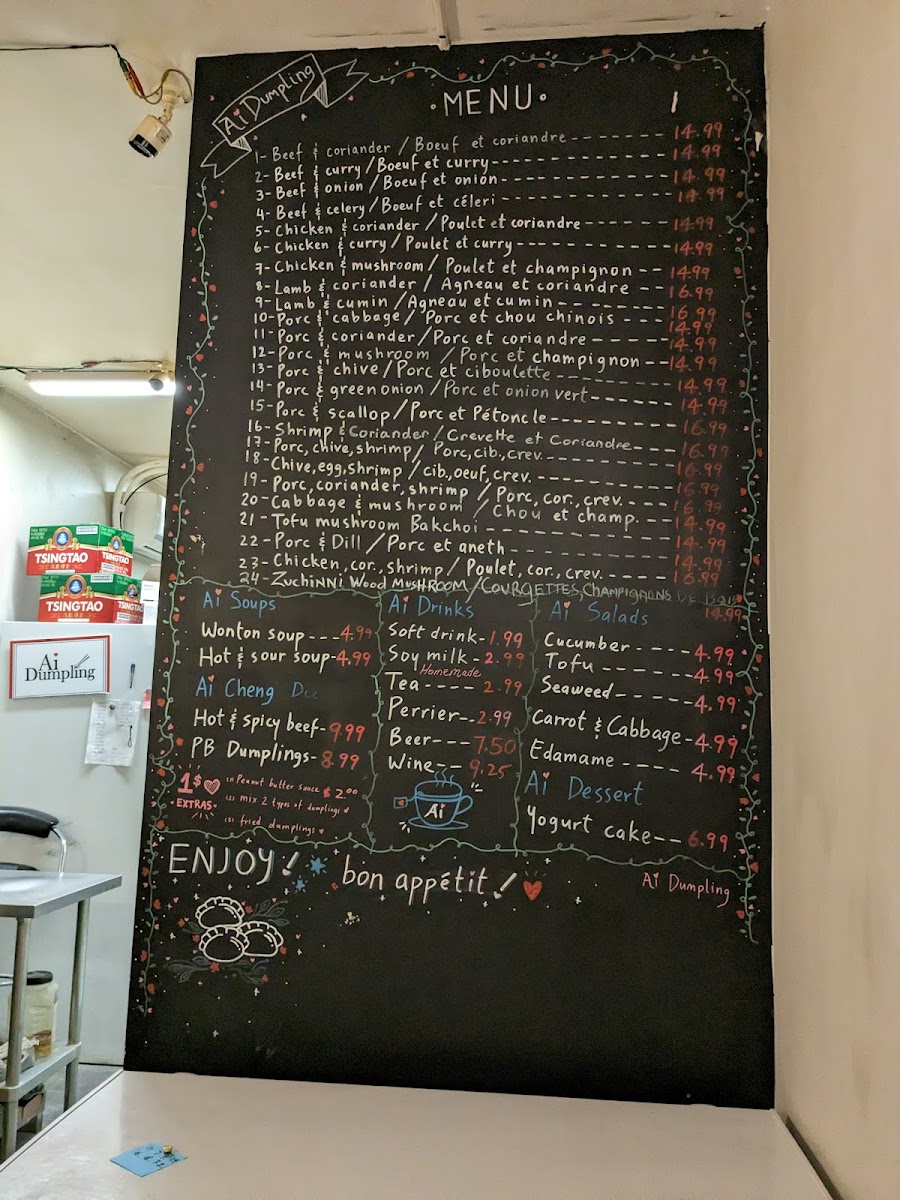 Ai Dumpling
·MENU·
1- Beef & coriander / Boeuf et coriandre ------- 14.99
2- Beef & curry / Boeuf et curry ------- 14.99
3- Beef & onion / Boeuf et onion ------- 14.99
4- Beef & celery / Boeuf et céleri ------- 14.99
5- Chicken & coriander / Poulet et coriandre ------- 14.99
6- Chicken & curry / Poulet et curry ------- 14.99
7- Chicken & mushroom / Poulet et champignon --- 14.99
8- Lamb & coriander / Agneau et coriandre --- 16.99
9- Lamb & cumin / Agneau et cumin ------- 16.99
10- Porc & cabbage / Porc et chou chinois ---- 14.99
11- Porc & coriander / Porc et coriandre ---- 14.99
12- Porc & mushroom / Porc et champignon --- 14.99
13- Porc & chive / Porc et ciboulette ------- 14.99
14- Porc & green onion / Porc et onion vert ------ 14.99
15- Porc & scallop / Porc et Pétoncle ------- 16.99
16- Shrimp & Coriander / Crevette et Coriandre --- 16.99
17- Porc, chive, shrimp / Porc, cib., crev. ------- 16.99
18- Chive, egg, shrimp / cib., oeuf, crev. ------- 16.99
19- Porc, coriander, shrimp / Porc, cor., crev. --- 16.99
20- Cabbage & mushroom / Chou et champ. --- 14.99
21- Tofu mushroom Bakchoi ------- 14.99
22- Porc & Dill / Porc et aneth ------- 14.99
23- Chicken, cor., shrimp / Poulet, cor., crev. ---- 16.99
24- ZuchiNNi Wood MusHROOM / COURGETTES, CHAMPIGNONS DE 14.99
Ai Soups
Wonton soup --- 4.99
Hot & sour soup - 4.99
Ai Cheng
Hot & spicy beef - 9.99
PB Dumplings - 8.99
1$
·EXTRAS·
(1) Peanut butter sauce $2.00
(2) mix 2 types of dumplings
(3) fried dumplings
Ai Drinks
Soft drink - 1.99
Soy milk - 2.99
Homemade
Tea ---- 2.99
Perrier -- 2.99
Beer --- 7.50
Wine -- 9.25
Ai
Ai Salads
Cucumber ---- 4.99
Tofu ---- 4.99
Seaweed ---- 4.99
Carrot & Cabbage - 4.99
Edamame ---- 4.99
Ai Dessert
Yogurt cake -- 6.99
ENJOY!
bon appétit!
Ai Dumpling
TSINGTAO
TSINGTAO
TSINGTAO
TSINGTAO
Ai
Dumpling